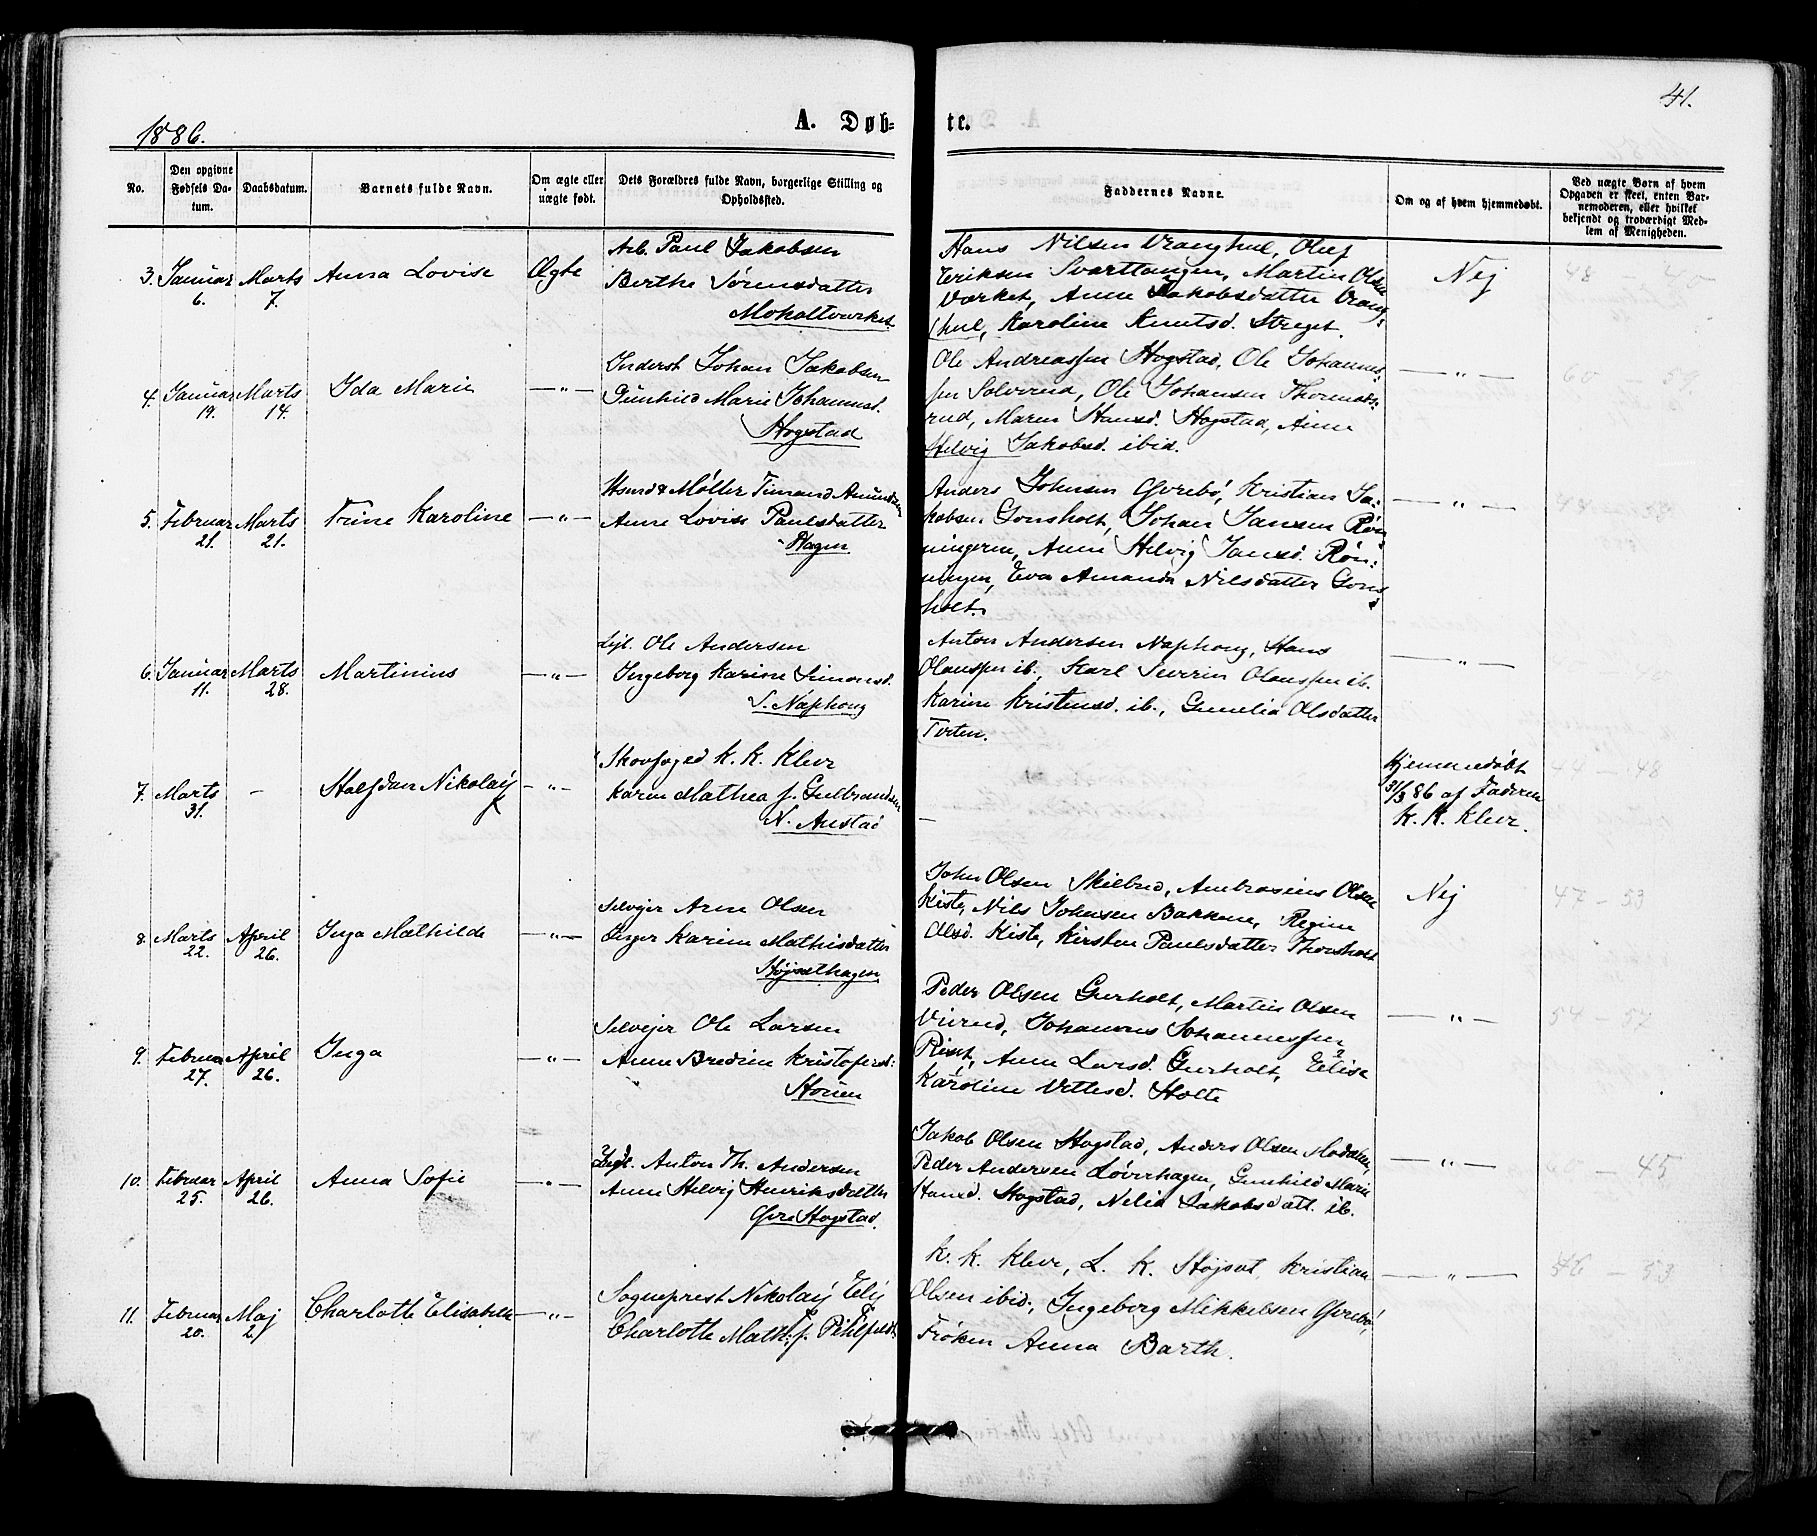 41.
1886.
A. Døb-
te.
No.
Den opgivne Fødsels Da-tum.
Daabsdatum.
Barnets fulde Navn.
Om ægte eller uægte født.
Dets Forældres fulde Navn, borgerlige Stilling og Opholdssted.
Faddernes Navne.
Om og af hvem hjemmedøbt.
Ved uægte Børn af hvem Opgaven er skeet, enten Bar-nemoderen, eller hvilket bekjendt og troværdigt Med-lem af Menigheden.
3. Januar 6. Marts 7. Anna Lovise Ægte
Arb. Paul Jakobsen
Berthe Sørensdatter
Moholtværket
Hans Nilsen Vranghul, Oluf
Eriksen Svarttangen, Martin Olsen
Værket, Anne Jakobsdatter Vrang
hul, Karoline Knutsd. Streget.
Nej
4. Januar 19. Marts 14. Ida Marie — „ —
Inderst Johan Jakobsen
Gunhild Marie Johannesd.
Hogstad
Ole Andreassen Hogstad, Ole Johannes-
sen Solverud, Ole Johansen Thormods-
rud, Maren Hansd. Hogstad, Anne
Helvig Jakobsd. ibid.
— „ —
5. Februar 21. Marts 21. Trine Karoline — „ —
Husmd & Møller Timand Amundsen
Anne Lovise Paulsdatter
Hagen
Anders Johnsen Øvrebø, Kristian Ja-
kobsen Gonsholt, Johan Jansen Røn
ningeren, Anne Helvig Jansd. Røn-
ningen, Eva Amanda Nilsdatter Gons
holt.
— „ —
6. Januar 11. Marts 28. Martinius — „ —
Leil. Ole Andersen
Ingeborg Karine Simonsd.
S. Naphoug
Anton Andersen Naphoug, Hans
Olaussen ib. Karl Severin Olaussen ib.
Karine Kristensd. ib., Gunelia Olsdatter
Torten.
— „ —
7. Marts 31. - Halfdan Nikolaij — „ —
Skovfoged K. K. Kleve
Karen Mathea f. Gulbrandsen
N. Austad
—
Hjemmedøbt
31/3 86 af Faderen
K. K. Kleve.
8. Marts 22. April 26. Inga Mathilde — „ —
Selvejer Arne Olsen
Inger Karine Mathisdatter
Højsethagen
John Olsen Skilbred, Ambrosius Olsen
Kiste, Nils Johnsen Bakkene, Regine
Olsd. Kiste, Kirsten Paulsdatter Thorsholt
Nej
47 - 53
9. Februar 27. April 26. Inga — „ —
Selvejer Ole Larsen
Anne Bredine Kristofersd:
Storien
Peder Olsen Gurholt, Martin Olsen
Virud, Johannes Johannessen
Rist, Anne Larsd. Gurholt, Elise
Karoline Vetlesd. Holte
— „ —
10. Februar 25. April 26. Anna Sofie — „ —
Anton Th. Andersen
Anne Helvig Henriksdatter
Øvre Hogstad.
Jakob Olsen Hogstad, Anders Olsen Modalen,
Peder Andersen Løverhagen, Gunhild Marie
Hansd. Hogstad, Nelia Jakobsdatt. ib.
— „ —
45
11. Februar 20. Maj 2. Charlotte Elisabeth — „ —
Sogneprest Nikolaij Elij
Charlotte Math: f. Pihlfeldt
K. K. Kleve, L. K. Højset, Kristian
Olsen ibid., Ingeborg Mikkelsen Øvrebø,
Frøken Anna Barth.
— „ —
46 53